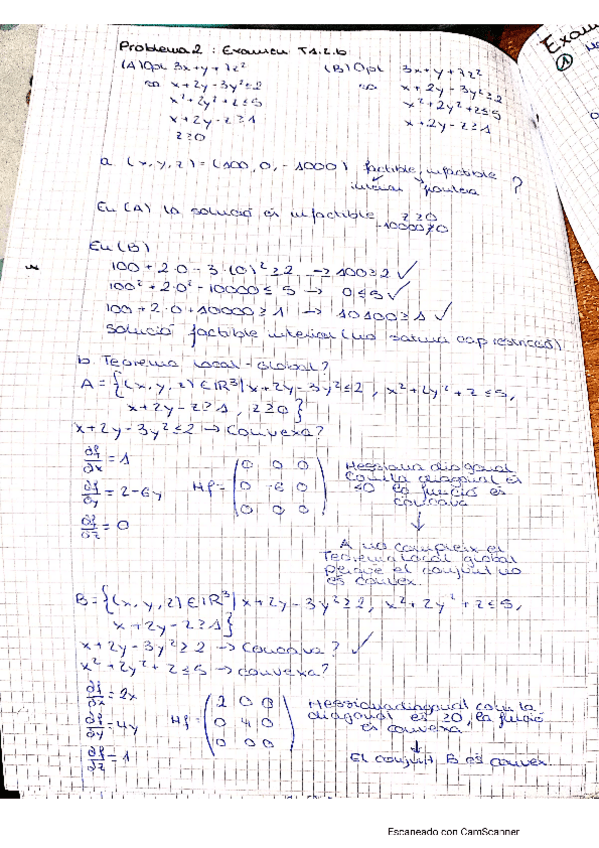 Problema 2 : Examen T1.2.b
(A) Opt 3x+y+7z²
(B) Opt 3x+y+7z²
x+2y-3y²≤2
x+2y-3y²≥2
x²+2y²+z≤5
x²+2y²+z≤5
x+2y-z≥1
x+2y-z≥1
z≥0
a. (x,y,z) = (100,0,-1000) factible, infactible
interior frontera ?
En (A) la solució és infactible z≥0
En (B)
100+2·0-3·(0)²≥2 → 100≥2 ✓
100²+2·0²-10000≤5 → 0≤5 ✓
100+2·0+10000≥1 → 10100≥1 ✓
solució factible interior (no satura cap restricció)
b. Teorema Local-Global?
A = {(x,y,z)∈ℝ³ | x+2y-3y²≤2, x²+2y²+z≤5,
x+2y-z≥1, z≥0}
x+2y-3y²≤2 → convexa?
∂f/∂x = 1
∂f/∂y = 2-6y
∂f/∂z = 0
Hf = (0 0 0
0 -6 0
0 0 0)
Hessiana diagonal
com la diagonal és
≤0 la funció és
còncava
↓
A no compleix el
Teorema Local global
perquè el conjunt no
és convex.
B = {(x,y,z)∈ℝ³ | x+2y-3y²≥2, x²+2y²+z≤5,
x+2y-z≥1}
x+2y-3y²≥2 → còncava? ✓
x²+2y²+z≤5 → convexa?
∂f/∂x = 2x
∂f/∂y = 4y
∂f/∂z = 1
Hf = (2 0 0
0 4 0
0 0 0)
Hessiana diagonal com la
diagonal és ≥0, la funció
és convexa
↓
El conjunt B és convex.
Exam
①
Escaneado con CamScanner